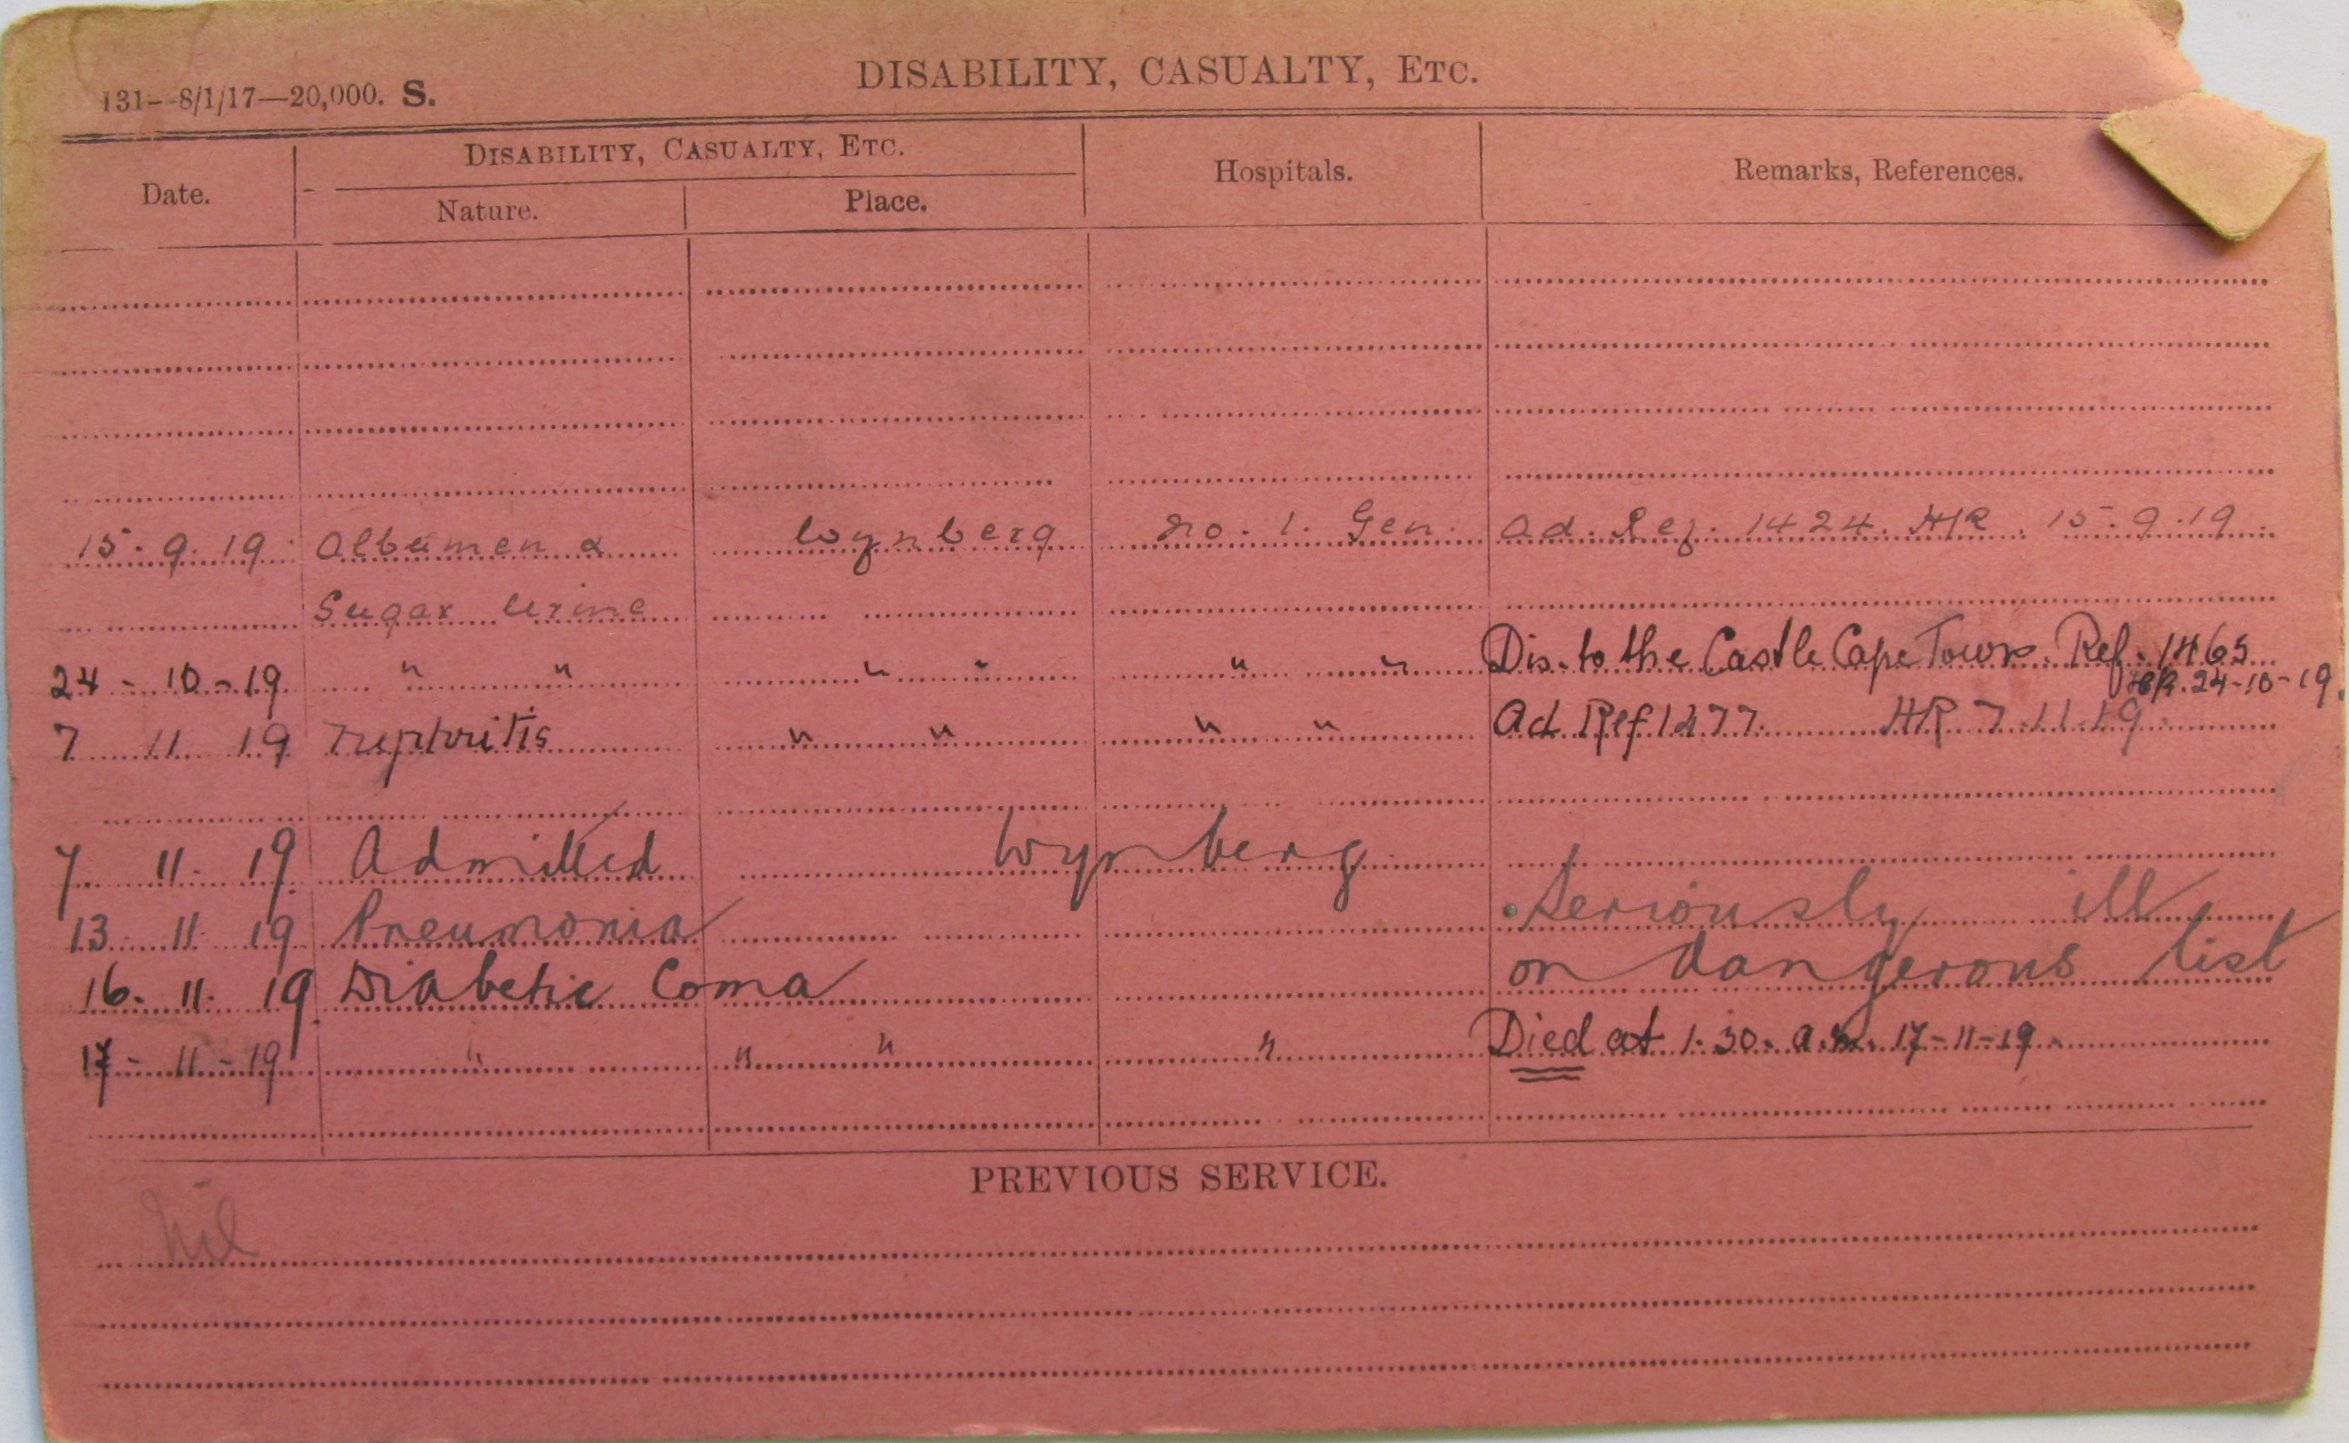 DISABILITY, CASUALTY, ETC.
131--8/1/17—20,000. S.
DISABILITY, CASUALTY, ETC.
Date. Nature. Place. Hospitals. Remarks, References.
15.9.19 Albumen & Wynberg No. 1. Gen. Ad. Ref. 1424. HR. 15.9.19
Sugar Urine
24-10-19 " " " " " " Dis. to the Castle Cape Town. Ref. 1465
HR. 24-10-19.
7 11 19 Nephritis " " " " Ad Ref 1477 HR 7.11.19
7 11 19 Admitted Wynberg
13 11 19 Pneumonia Seriously ill
16. 11. 19 Diabetic Coma on dangerous list
17-11-19 " " " " Died at 1.30. a.m. 17-11-19
PREVIOUS SERVICE.
Nil